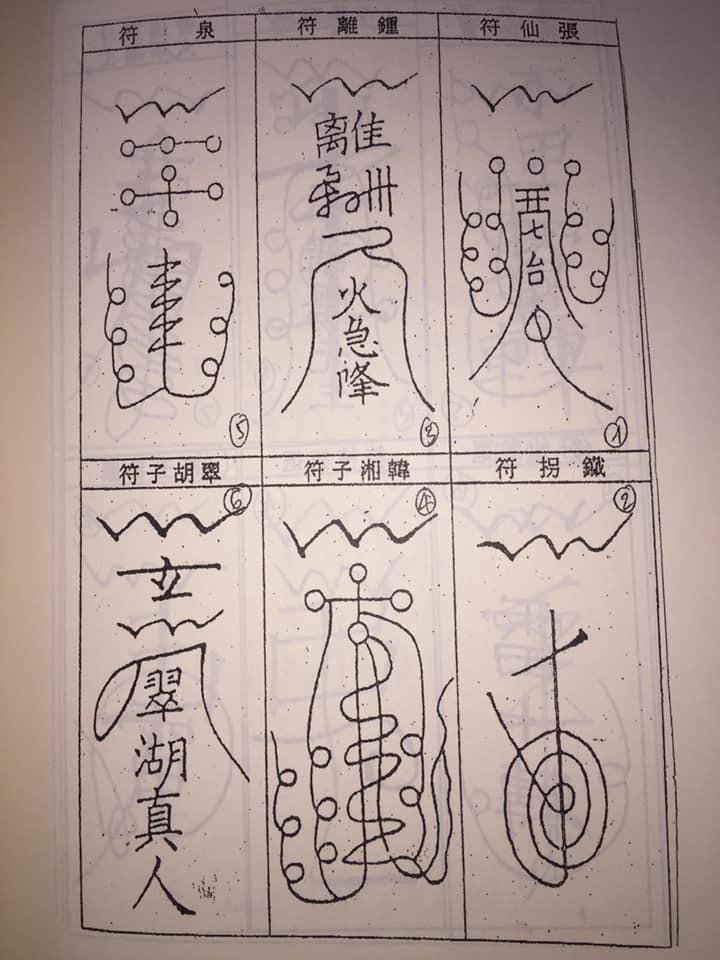 張仙符
五七台
1
鍾離符
離
火急降
3
泉符
5
鐵拐符
2
韓湘子符
4
翠胡子符
6
翠湖真人